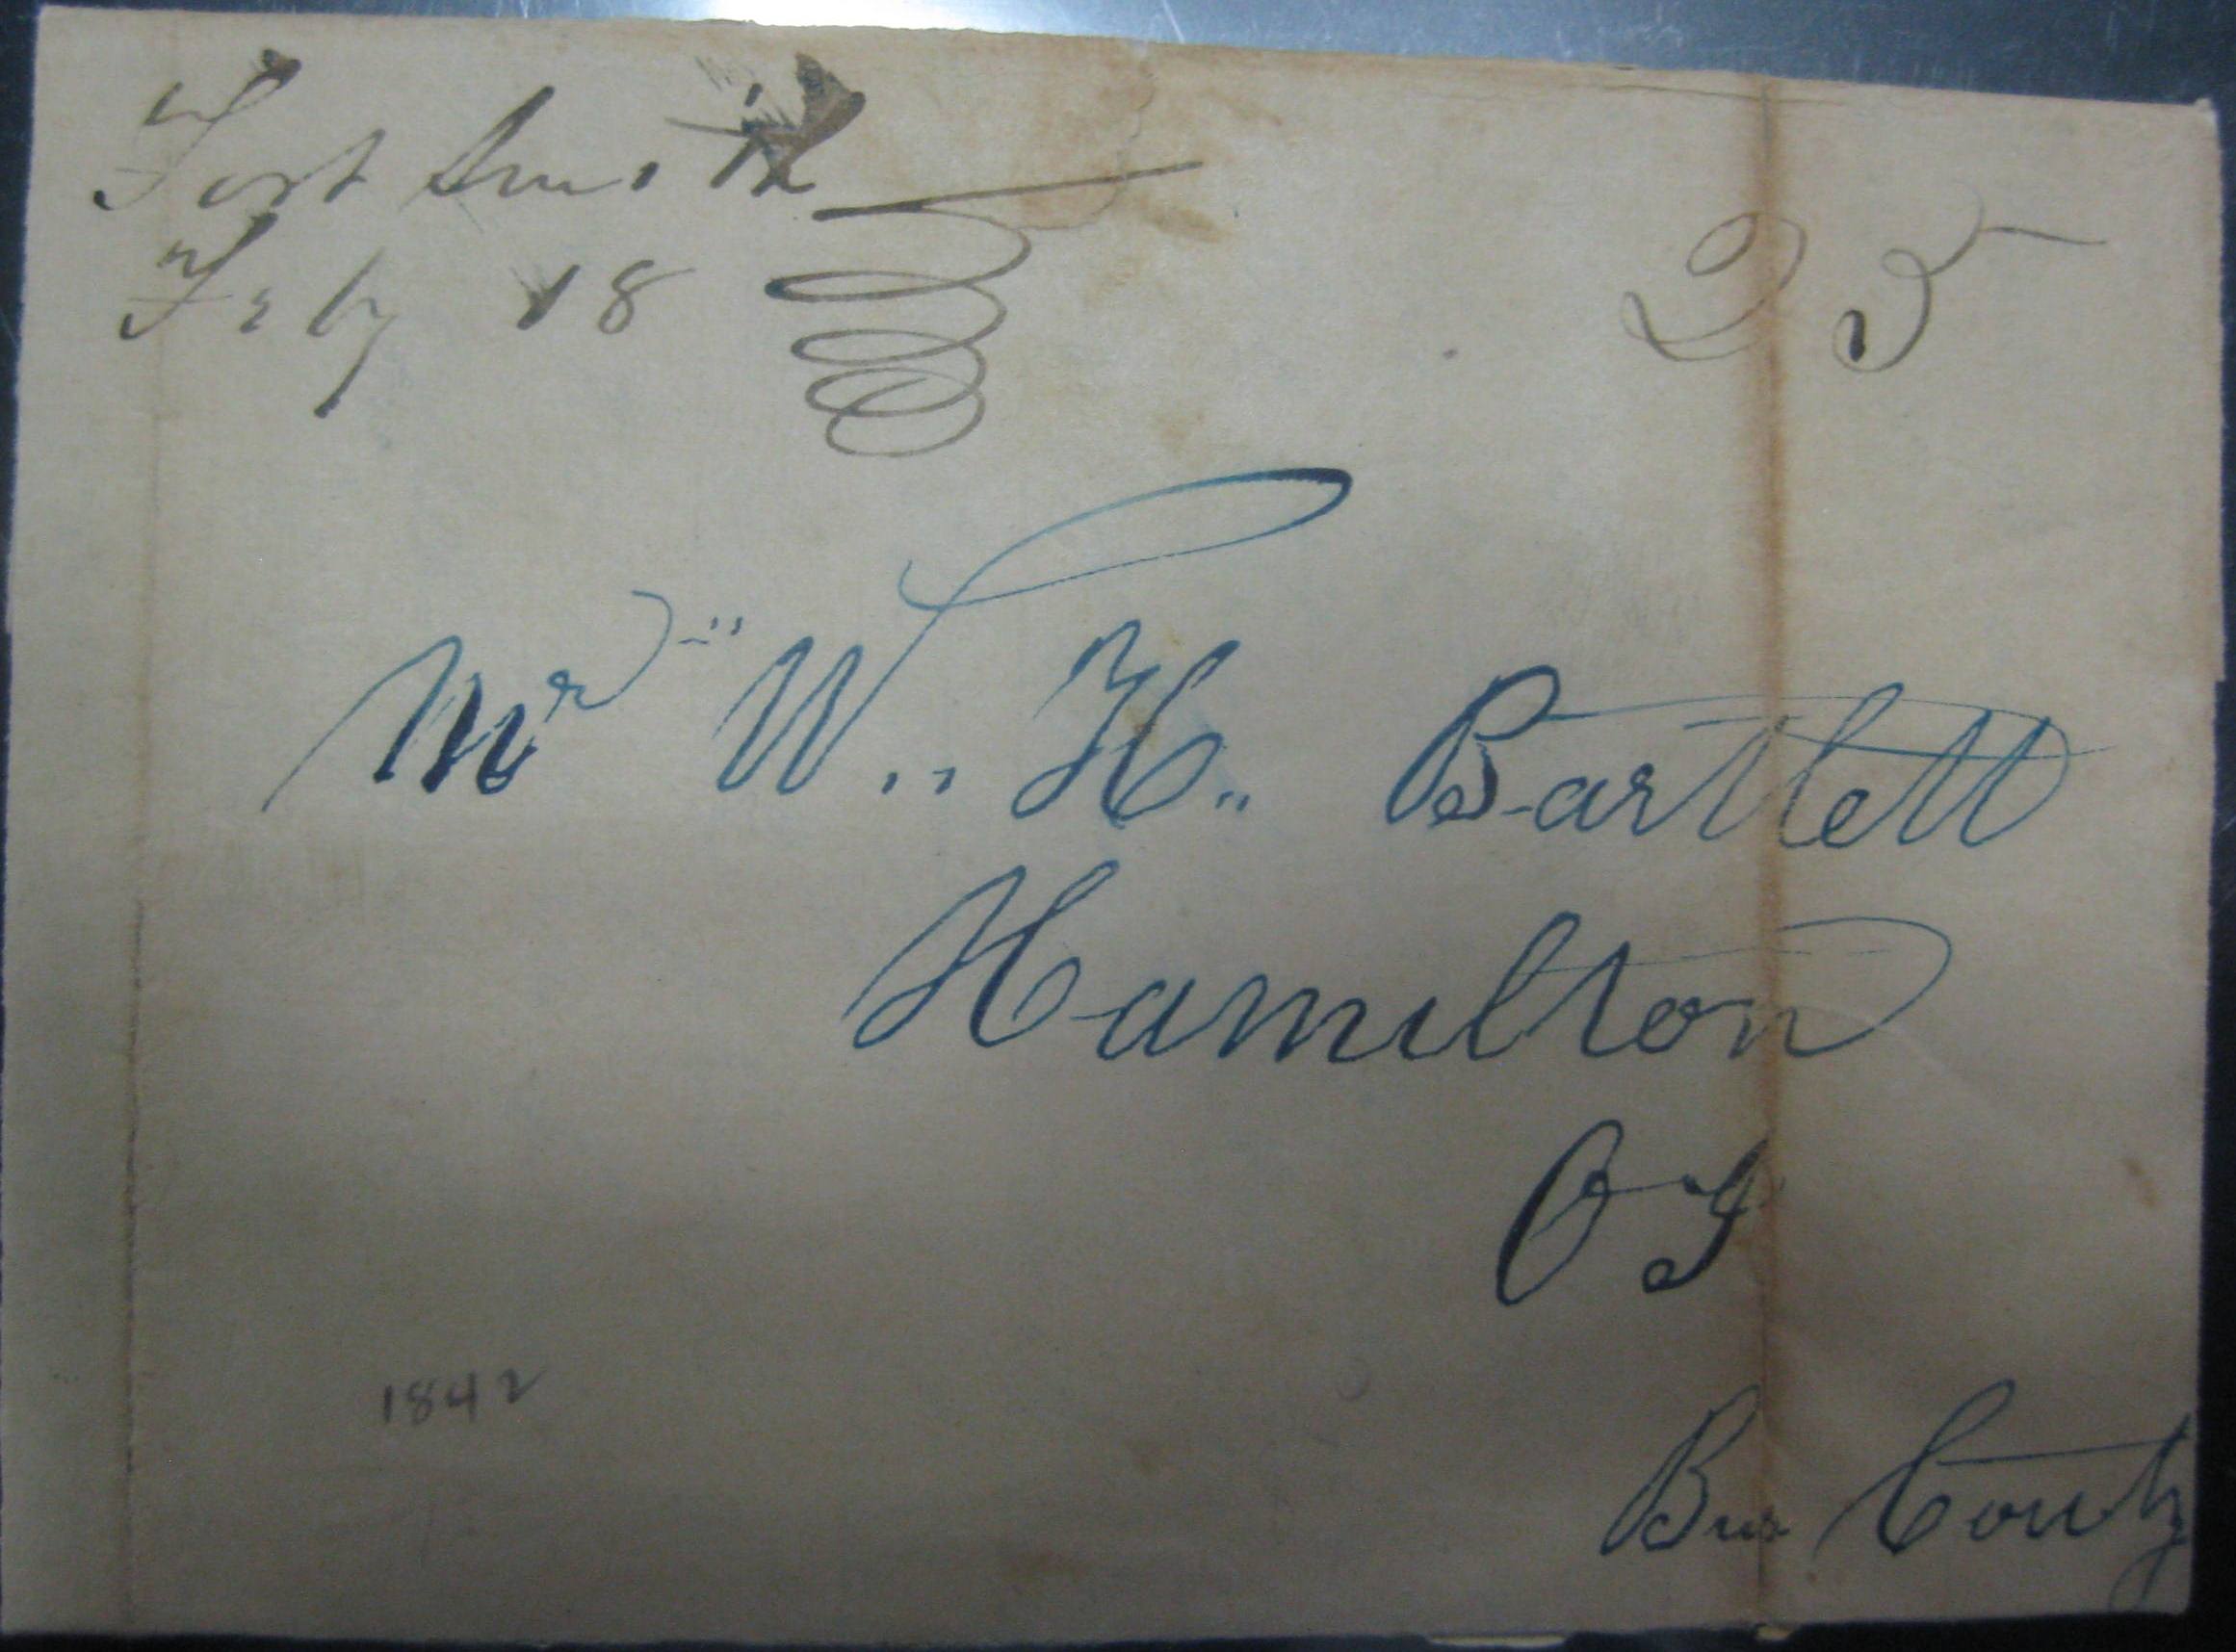 Fort Smith
Feby 18
25
Mr W.. H.. Bartlett
Hamilton
O
1842
Couty